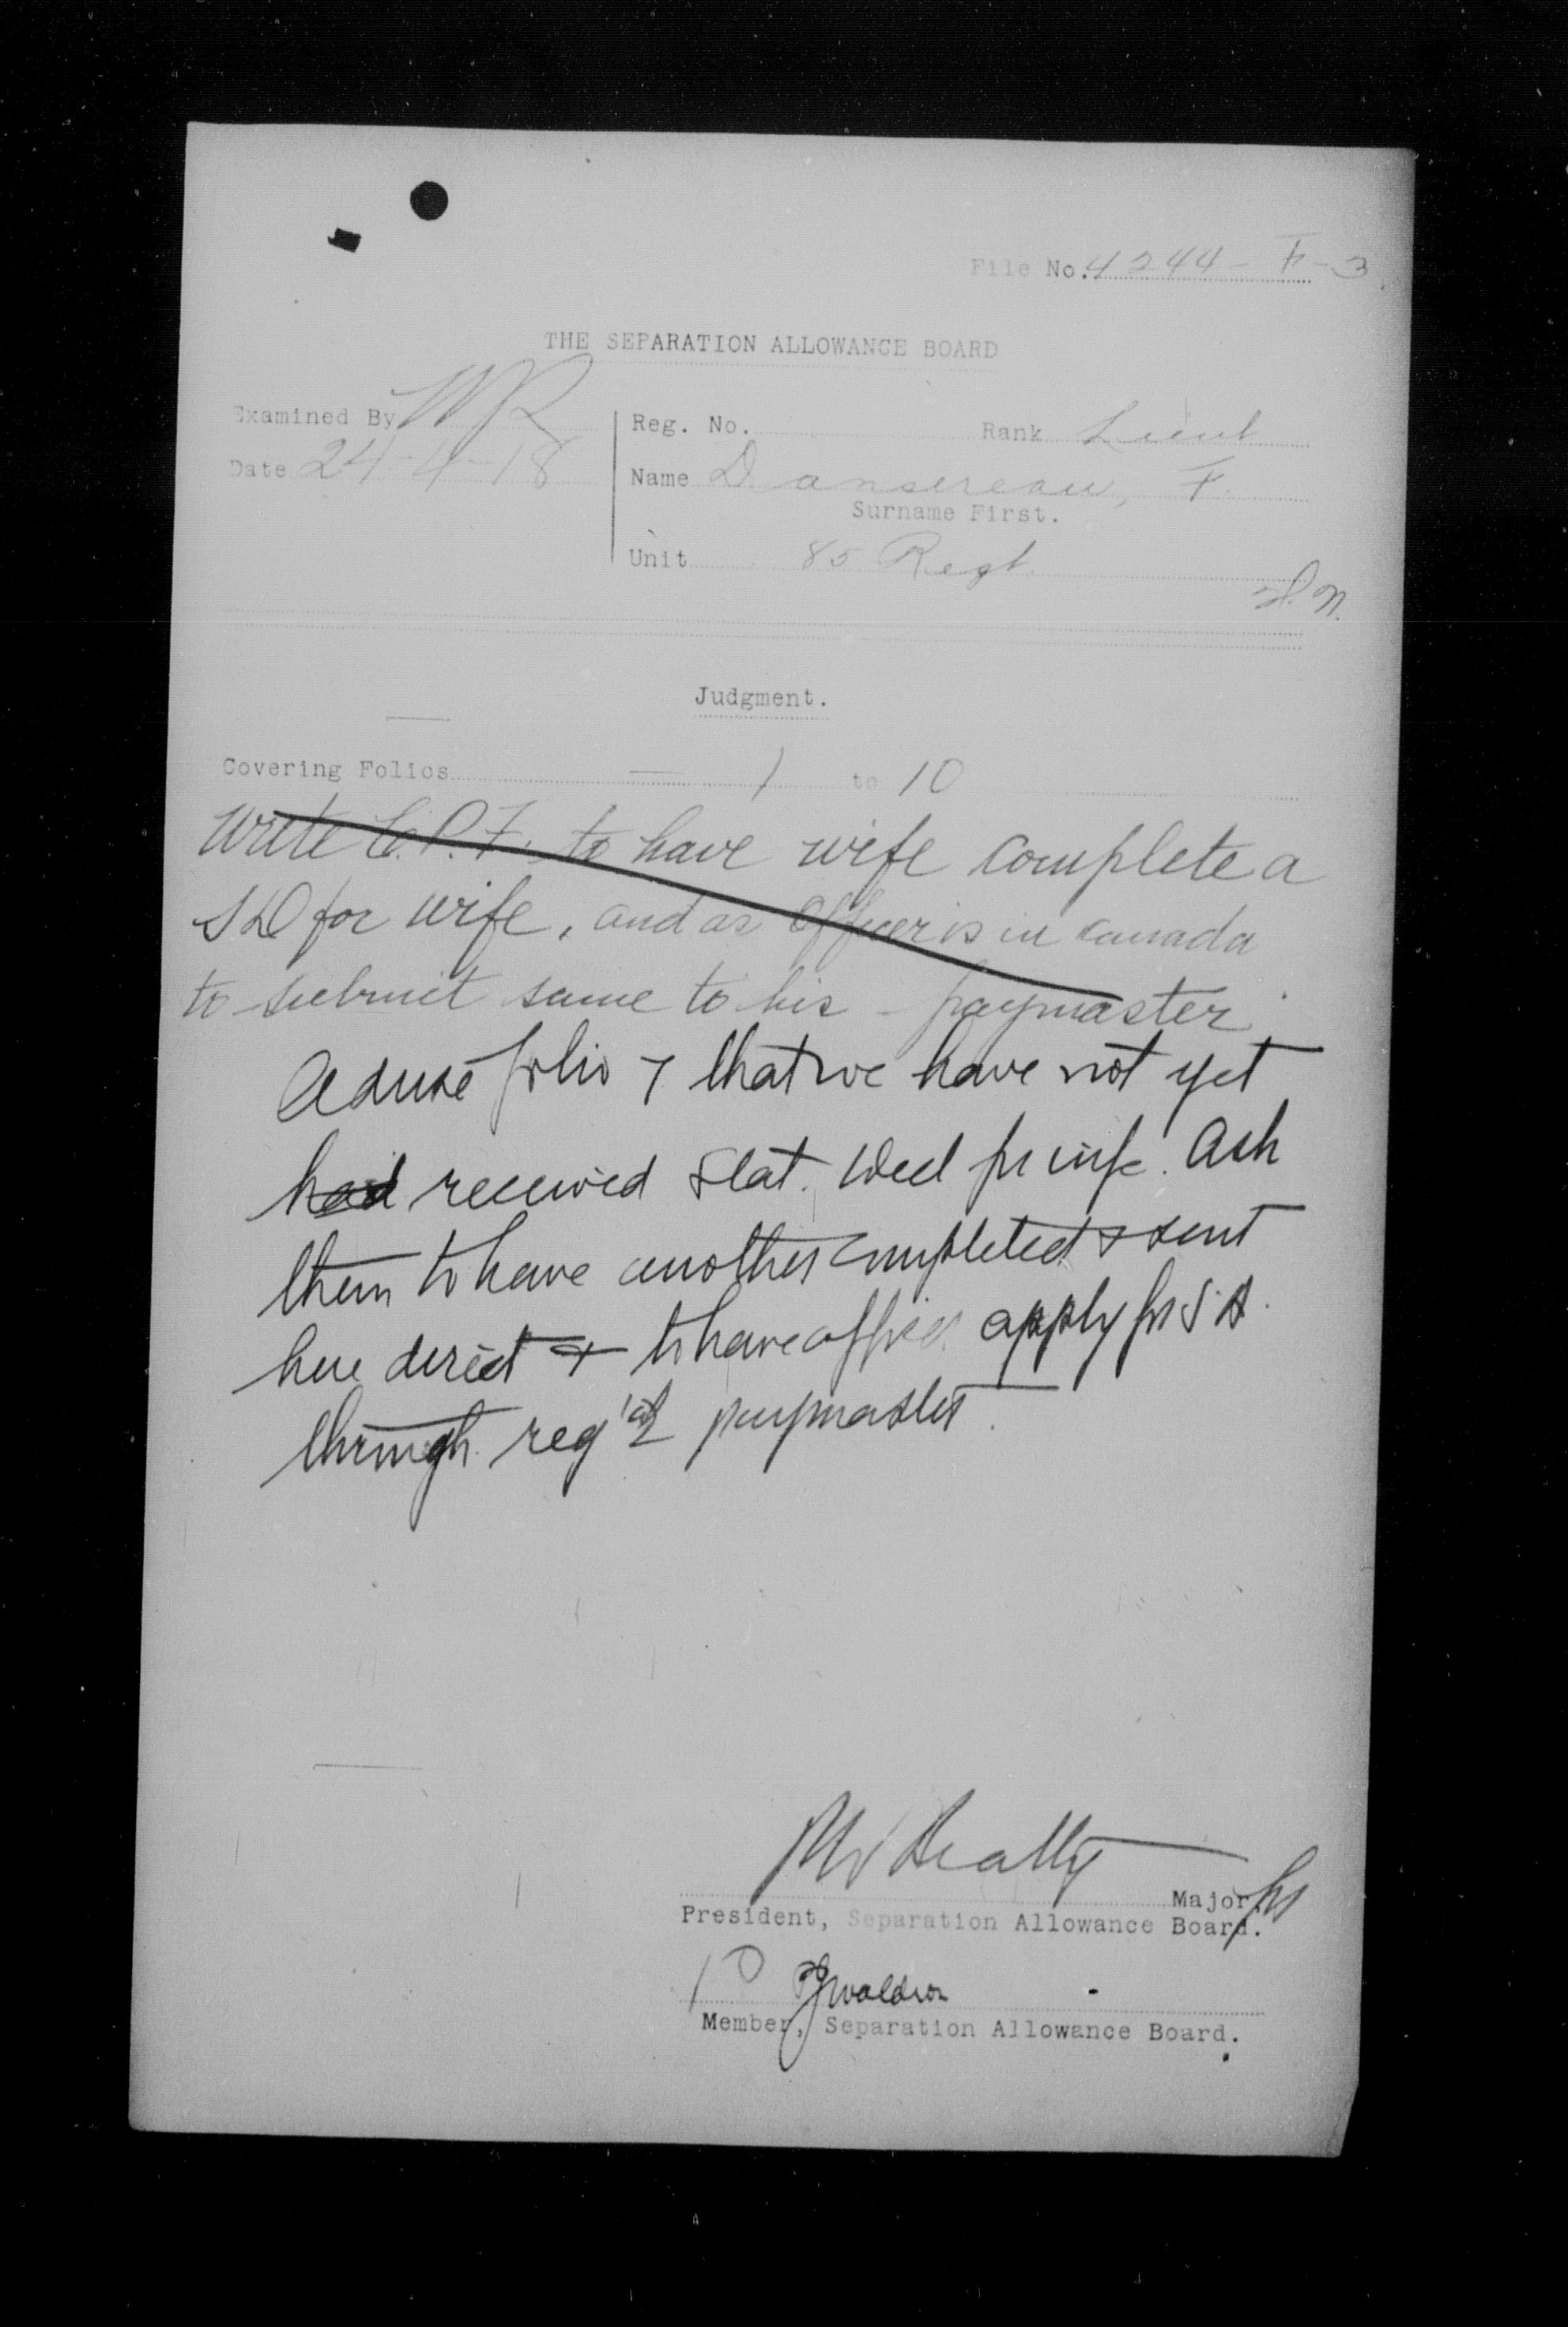 File No. 4244 - F - 3
THE SEPARATION ALLOWANCE BOARD
Examined By
Date 24-4-18
Reg. No. Rank Lieut
Name Dansereau, F.
Surname First.
Unit 85 Regt.
Judgment.
Covering Folios 1 to 10
Write C.P.F. to have wife complete a
SD for wife, and as Officer is in Canada
to submit same to his - paymaster
Advise folio 7 that we have not yet
had received Stat. Decl for wife. Ask
them to have another completed & sent
here direct & to have officer apply for S.A.
through reg'tal paymaster.
Major
President, Separation Allowance Board.
Waldron
Member, Separation Allowance Board.